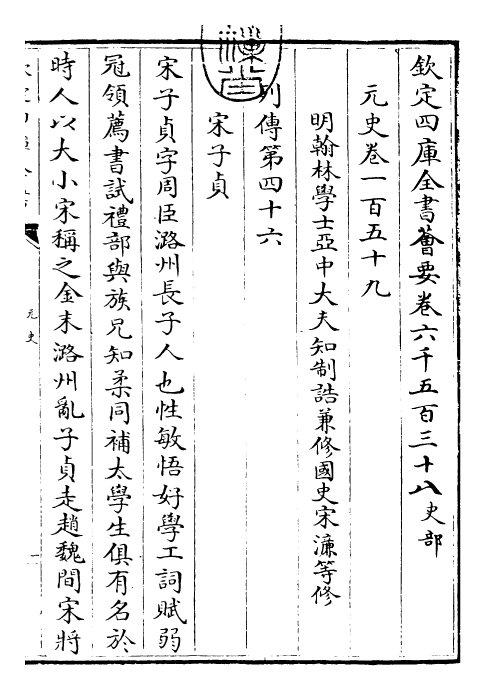 欽定四庫全書薈要卷六千五百三十八史部
元史卷一百五十九
明翰林學士亞中大夫知制誥兼修國史宋濂等修
列傳第四十六
宋子貞
宋子貞字周臣潞州長子人也性敏悟好學工詞賦弱
冠領薦書試禮部與族兄知柔同補太學生俱有名於
時人以大小宋稱之金末潞州亂子貞走趙魏間宋將
元史
一